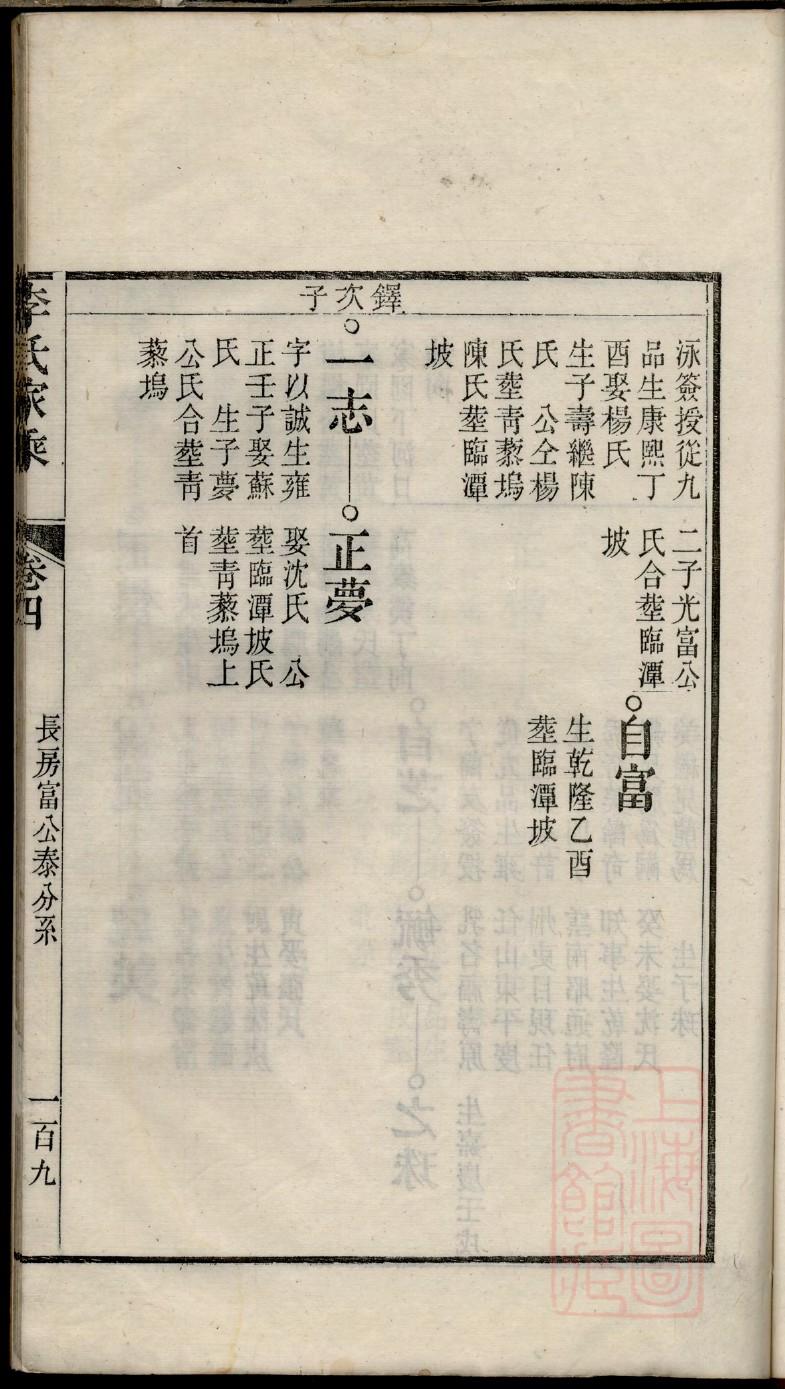 鐸次子
泳簽授從九
品生康熙丁
酉娶楊氏
生子壽繼陳
氏　公仝楊
氏塟靑藜塢
陳氏塟臨潭
坡
二子光富公
氏合塟臨潭
坡
自富
生乾隆乙酉
塟臨潭坡
一志
字以誠生雍
正壬子娶蘇
氏　生子夢
公氏合塟靑
藜塢
正夢
娶沈氏　公
塟臨潭坡氏
塟靑藜塢上
首
李氏家乘
卷四
長房富公泰分系
一百九
上海圖
書館藏